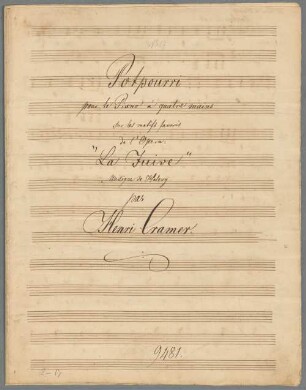 Potpourri
pour le Piano à quatre mains
sur les motifs favoris
de l'Opera
"La Juive"
Musique de Halevy
par
Henri Cramer
9481.